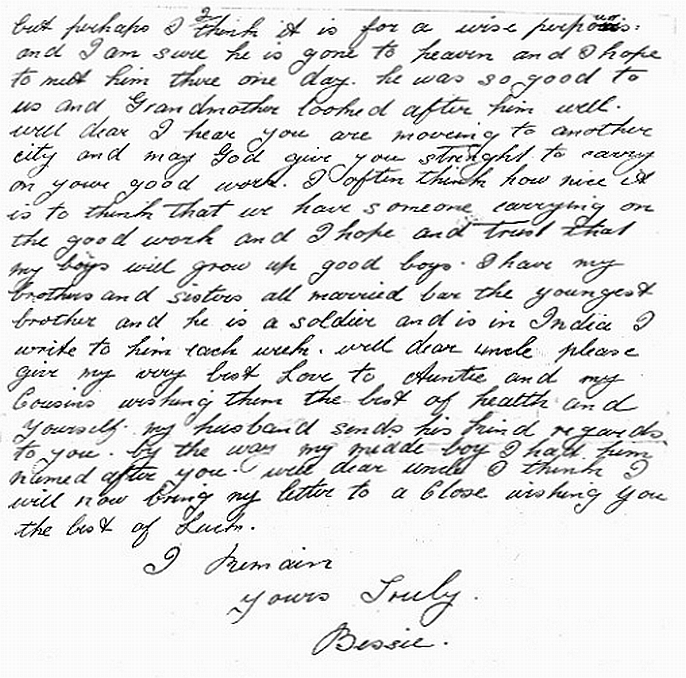 but perhaps I think it is for a wise purpous:
and I am sure he is gone to heaven and I hope
to meet him there one day. he was so good to
us and Grandmother looked after him well.
well dear I hear you are moving to another
city and may God give you strenght to carry
on youre good work. I often think how nice it
is to think that we have someone carrying on
the good work and I hope and trust that
my boys will grow up good boys. I have my
brothers and sisters all married bar the youngest
brother and he is a soldier and is in India I
write to him each week. well dear uncle please
give my very best Love to Auntie and my
Cousins wishing them the best of health and
yourself. my husband sends his kind regards
to you. by the way my middle boy I had him
named after you. well dear uncle I think I
will now bring my letter to a Close wishing you
the best of Luck.
I Remain
yours Truly.
Bessie.